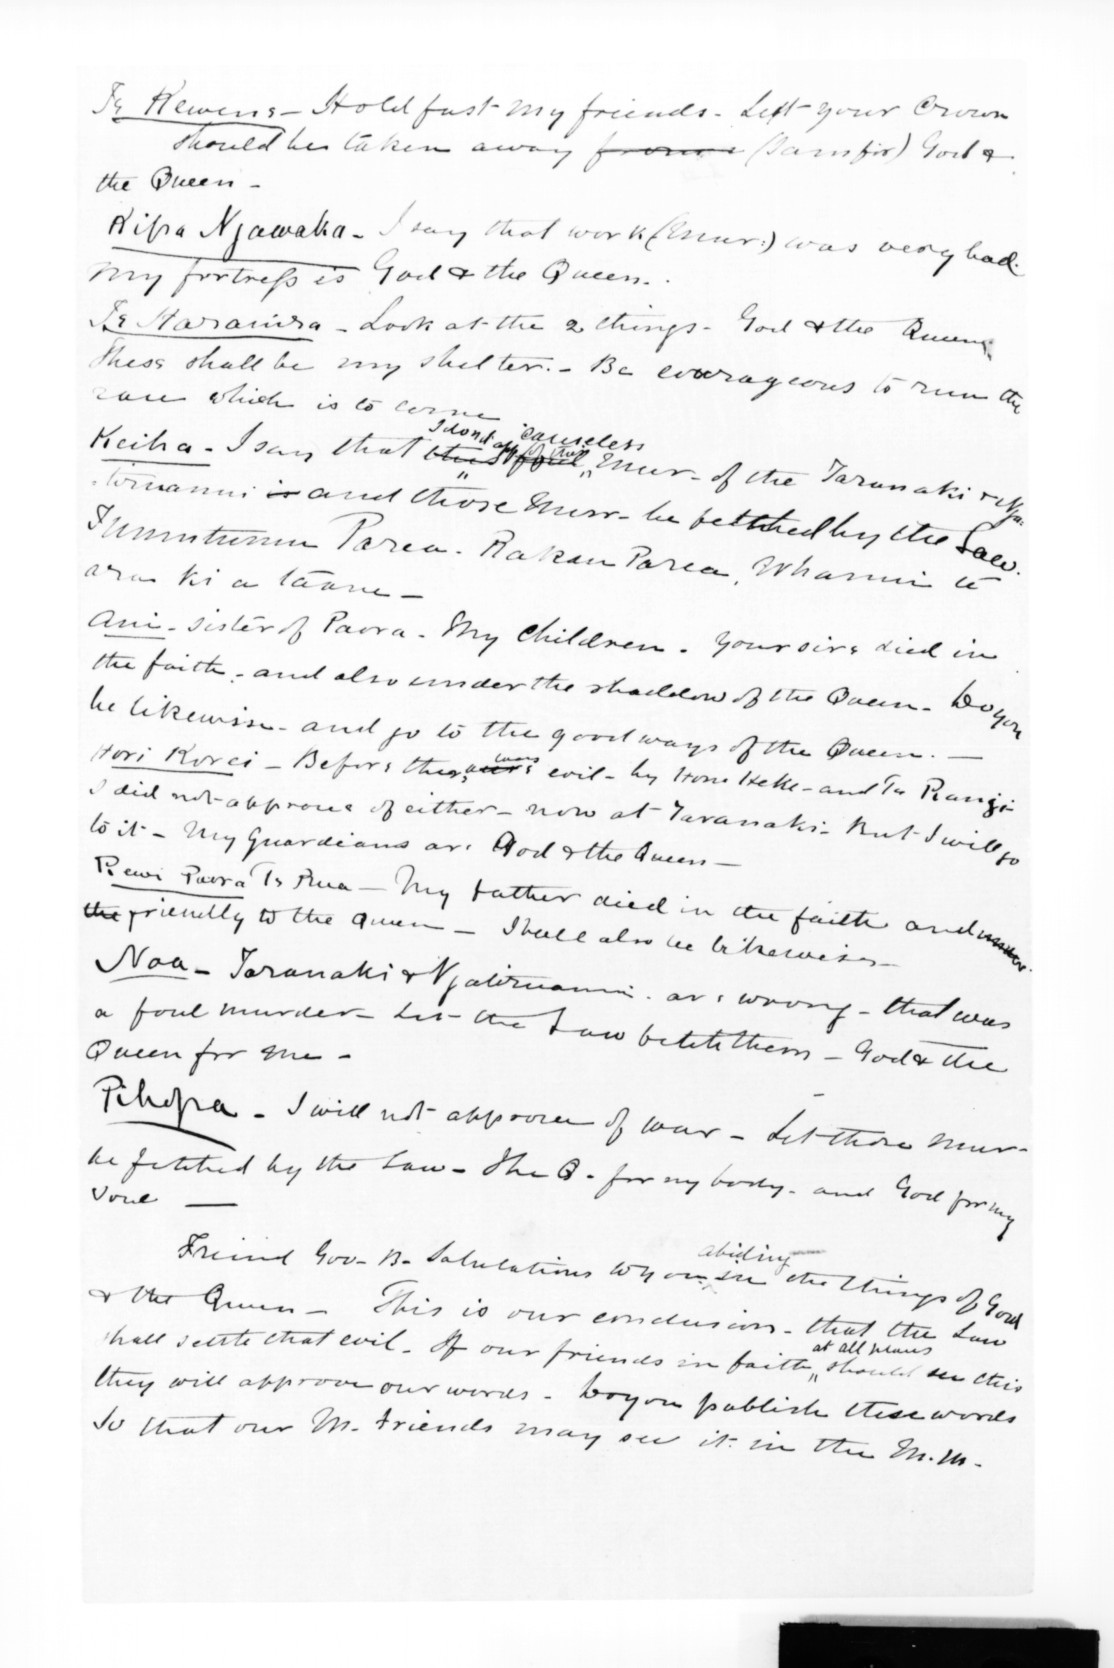 Te Rewene - Hold fast my friends - Lest your Crown
should be taken away from (I am for) God &
the Queen -
Kipa Ngawaka - I say that work (mur:) was very bad.
my fortress is God & the Queen.
Te Haraiura - Look at the 2 things - God & the Queen
These shall be my shelter. - Be courageous to run the
race which is to come
I dont app of this causeless
Keiha - I say that the foul mur - of the Taranaki & Nga
tiruanui is and those mur - be fetched by the Law.
Tumutumu Parea. Rakau Parea, Whanui te
ara ki a tāane -
Ani - sister of Paora - My children. Your sire died in
the faith - and also under the shaddow of the Queen - Do you
be likewise - and go to the good ways of the Queen. -
Hori Korei - Before there was evil - by Hone Heke - and Te Rangi
I did not approve of either - now at Taranaki - But I will go
to it - My Guardians are God & the Queen -
Rewi Paora Te Rua - My father died in the faith and
the friendly to the Queen - I shall also be likewise -
Noa - Taranaki & Ngatiruanui are wrong - that was
a foul murder - Let the Law fetch them - God & the
Queen for me -
Pihopa - I will not approve of war - Let those mur -
be fetched by the Law - The Q. for my body - and God for my
soul -
abiding
Friend Gov - B - Salutations to you in the things of God
& the Queen - This is our conclusion - that the Law
shall settle that evil. If our friends in faith, should see this
at all places
they will approve our words - Do you publish these words
So that our M. Friends may see it in the M.M.